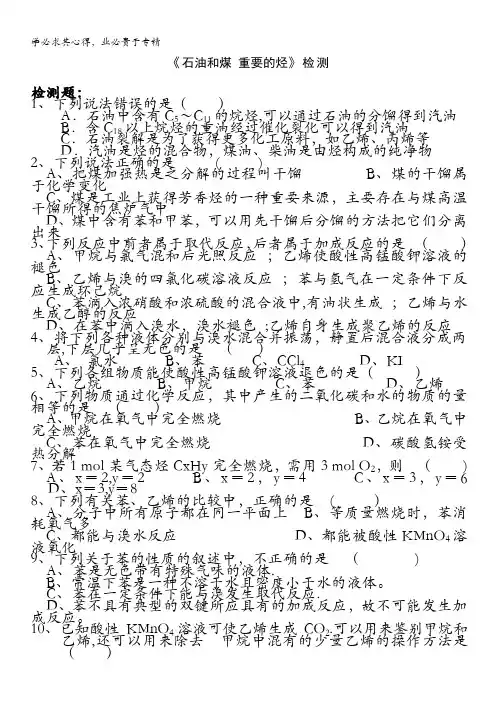 学必求其心得，业必贵于专精
《石油和煤 重要的烃》检测
检测题：
1、下列说法错误的是（ ）
A．石油中含有C₅～C₁₁的烷烃,可以通过石油的分馏得到汽油
B．含C₁₈以上烷烃的重油经过催化裂化可以得到汽油
C．石油裂解是为了获得更多化工原料，如乙烯、丙烯等
D．汽油是烃的混合物，煤油、柴油是由烃构成的纯净物
2、下列说法正确的是 （ ）
A、把煤加强热是之分解的过程叫干馏 B、煤的干馏属
于化学变化
C、煤是工业上获得芳香烃的一种重要来源，主要存在与煤高温
干馏所得的焦炉气中
D、煤中含有苯和甲苯，可以用先干馏后分馏的方法把它们分离
出来
3、下列反应中前者属于取代反应,后者属于加成反应的是 （ ）
A、甲烷与氯气混和后光照反应 ；乙烯使酸性高锰酸钾溶液的
褪色
B、乙烯与溴的四氯化碳溶液反应 ；苯与氢气在一定条件下反
应生成环己烷
C、苯滴入浓硝酸和浓硫酸的混合液中,有油状生成 ；乙烯与水
生成乙醇的反应
D、在苯中滴入溴水，溴水褪色 ;乙烯自身生成聚乙烯的反应
4、将下列各种液体分别与溴水混合并振荡，静置后混合液分成两
层,下层几乎呈无色的是 （ ）
A、氯水 B、苯 C、CCl₄ D、KI
5、下列各组物质能使酸性高锰酸钾溶液退色的是（ ）
A、乙烷 B、甲烷 C、苯 D、乙烯
6、下列物质通过化学反应，其中产生的二氧化碳和水的物质的量
相等的是 （ ）
A、甲烷在氧气中完全燃烧 B、乙烷在氧气中
完全燃烧
C、苯在氧气中完全燃烧 D、碳酸氢铵受
热分解
7、若1 mol某气态烃CxHy完全燃烧，需用3 mol O₂，则 （ ）
A、x＝2,y＝2 B、x＝2，y＝4 C、x＝3，y＝6
D、x＝3,y＝8
8、下列有关苯、乙烯的比较中，正确的是 （ ）
A、分子中所有原子都在同一平面上 B、等质量燃烧时，苯消
耗氧气多
C、都能与溴水反应 D、都能被酸性KMnO₄溶
液氧化
9、下列关于苯的性质的叙述中，不正确的是 （ ）
A、苯是无色带有特殊气味的液体
B、常温下苯是一种不溶于水且密度小于水的液体。
C、苯在一定条件下能与溴发生取代反应
D、苯不具有典型的双键所应具有的加成反应，故不可能发生加
成反应。
10、已知酸性 KMnO₄溶液可使乙烯生成 CO₂,可以用来鉴别甲烷和
乙烯,还可以用来除去 甲烷中混有的少量乙烯的操作方法是
（ ）